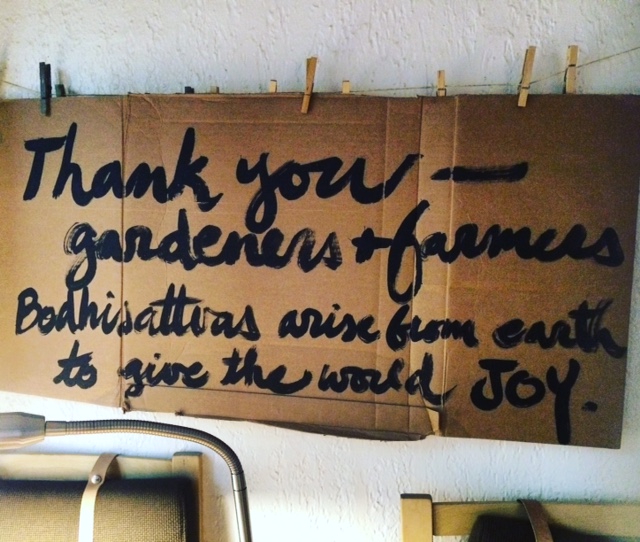 Thank you —
gardeners + farmers
Bodhisattvas arise from earth
to give the world JOY.